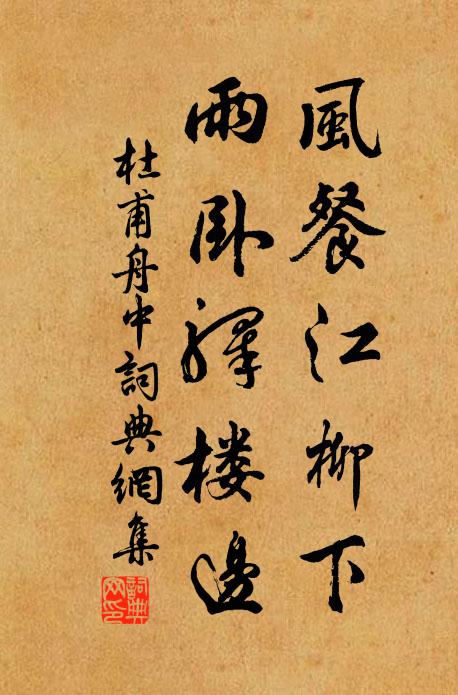 風餐江柳下
雨臥驛樓邊
杜甫舟中詞典網集
詞典網印